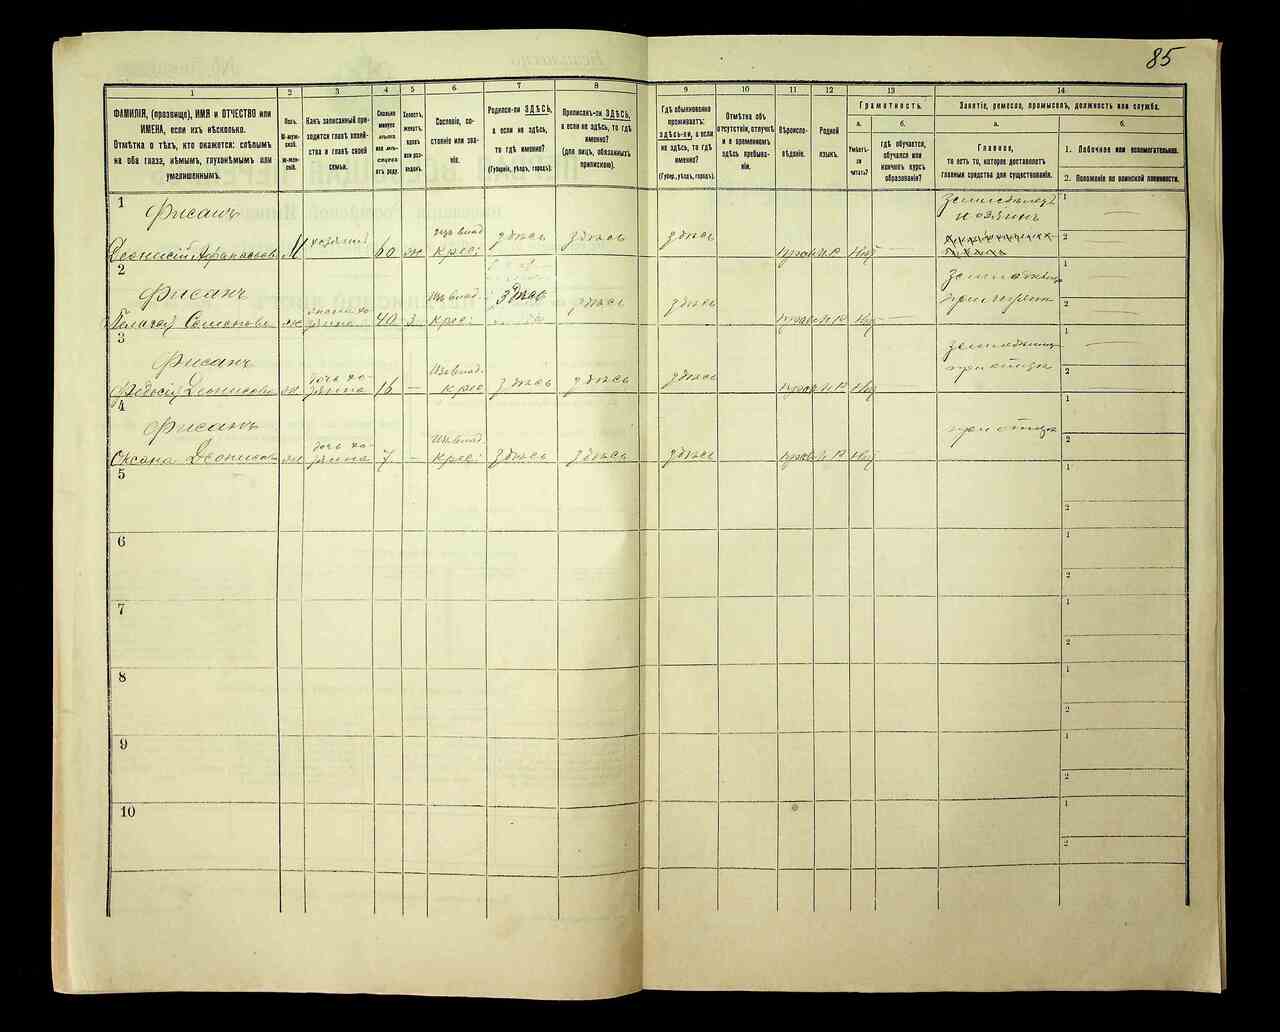 85
1
2
3
4
5
6
7
8
9
10
11
12
13
14
ФАМИЛІЯ, (прозвище), ИМЯ и ОТЧЕСТВО или
ИМЕНА, если ихъ нѣсколько.
Отмѣтка о тѣхъ, кто окажется: слѣпымъ
на оба глаза, нѣмымъ, глухонѣмымъ или
умалишеннымъ.
Полъ.
М-муж-
ской.
Ж-жен-
скій.
Какъ записанный при-
ходится главѣ хозяй-
ства и главѣ своей
семьи.
Сколько
минуло
лѣтъ
или мѣ-
сяцевъ
отъ роду.
Холостъ,
женатъ,
вдовъ
или раз-
веденъ.
Сословіе, со-
стояніе или зва-
ніе.
Родился-ли ЗДѢСЬ,
а если не здѣсь,
то гдѣ именно?
(Губернія, уѣздъ, городъ).
Приписанъ-ли ЗДѢСЬ,
а если не здѣсь, то гдѣ
именно?
(для лицъ, обязанныхъ
припискою).
Гдѣ обыкновенно
проживаетъ:
здѣсь-ли, а если
не здѣсь, то гдѣ
именно?
(Губер., уѣздъ, городъ).
Отмѣтка объ
отсутствіи, отлучкѣ
и о временномъ
здѣсь пребыва-
ніи.
Вѣроиспо-
вѣданіе.
Родной
языкъ.
Грамотность.
а.
Умѣетъ-
ли
читать?
б.
гдѣ обучается,
обучался или
кончилъ курсъ
образованія?
Занятіе, ремесло, промыселъ, должность или служба.
а.
Главное,
то есть то, которое доставляетъ
главныя средства для существованія.
б.
1. Побочное или вспомогательное.
2. Положеніе по воинской повинности.
1
Фисанъ
Деонисій Афанасьев М хозяинъ 60 ж Изъ влад. крес: здѣсь здѣсь здѣсь правос Нѣт
земледѣлецъ
хозяинъ
1
2
2
Фисанъ
Пелагея Семенова ж 40 з Изъ влад. крес: здѣсь здѣсь здѣсь правос Нѣт
1
2
3
Фисанъ
Федосія Деонисова ж дочь хо-
зяина 16 — Изъ влад. крес здѣсь здѣсь здѣсь правос Нѣт
при отцѣ
1
2
4
Фисанъ
Оксана Деонисов ж дочь хо-
зяина 7 — Изъ влад. крес: здѣсь здѣсь здѣсь правос Нѣт
при отцѣ
1
2
5
1
2
6
1
2
7
1
2
8
1
2
9
1
2
10
1
2